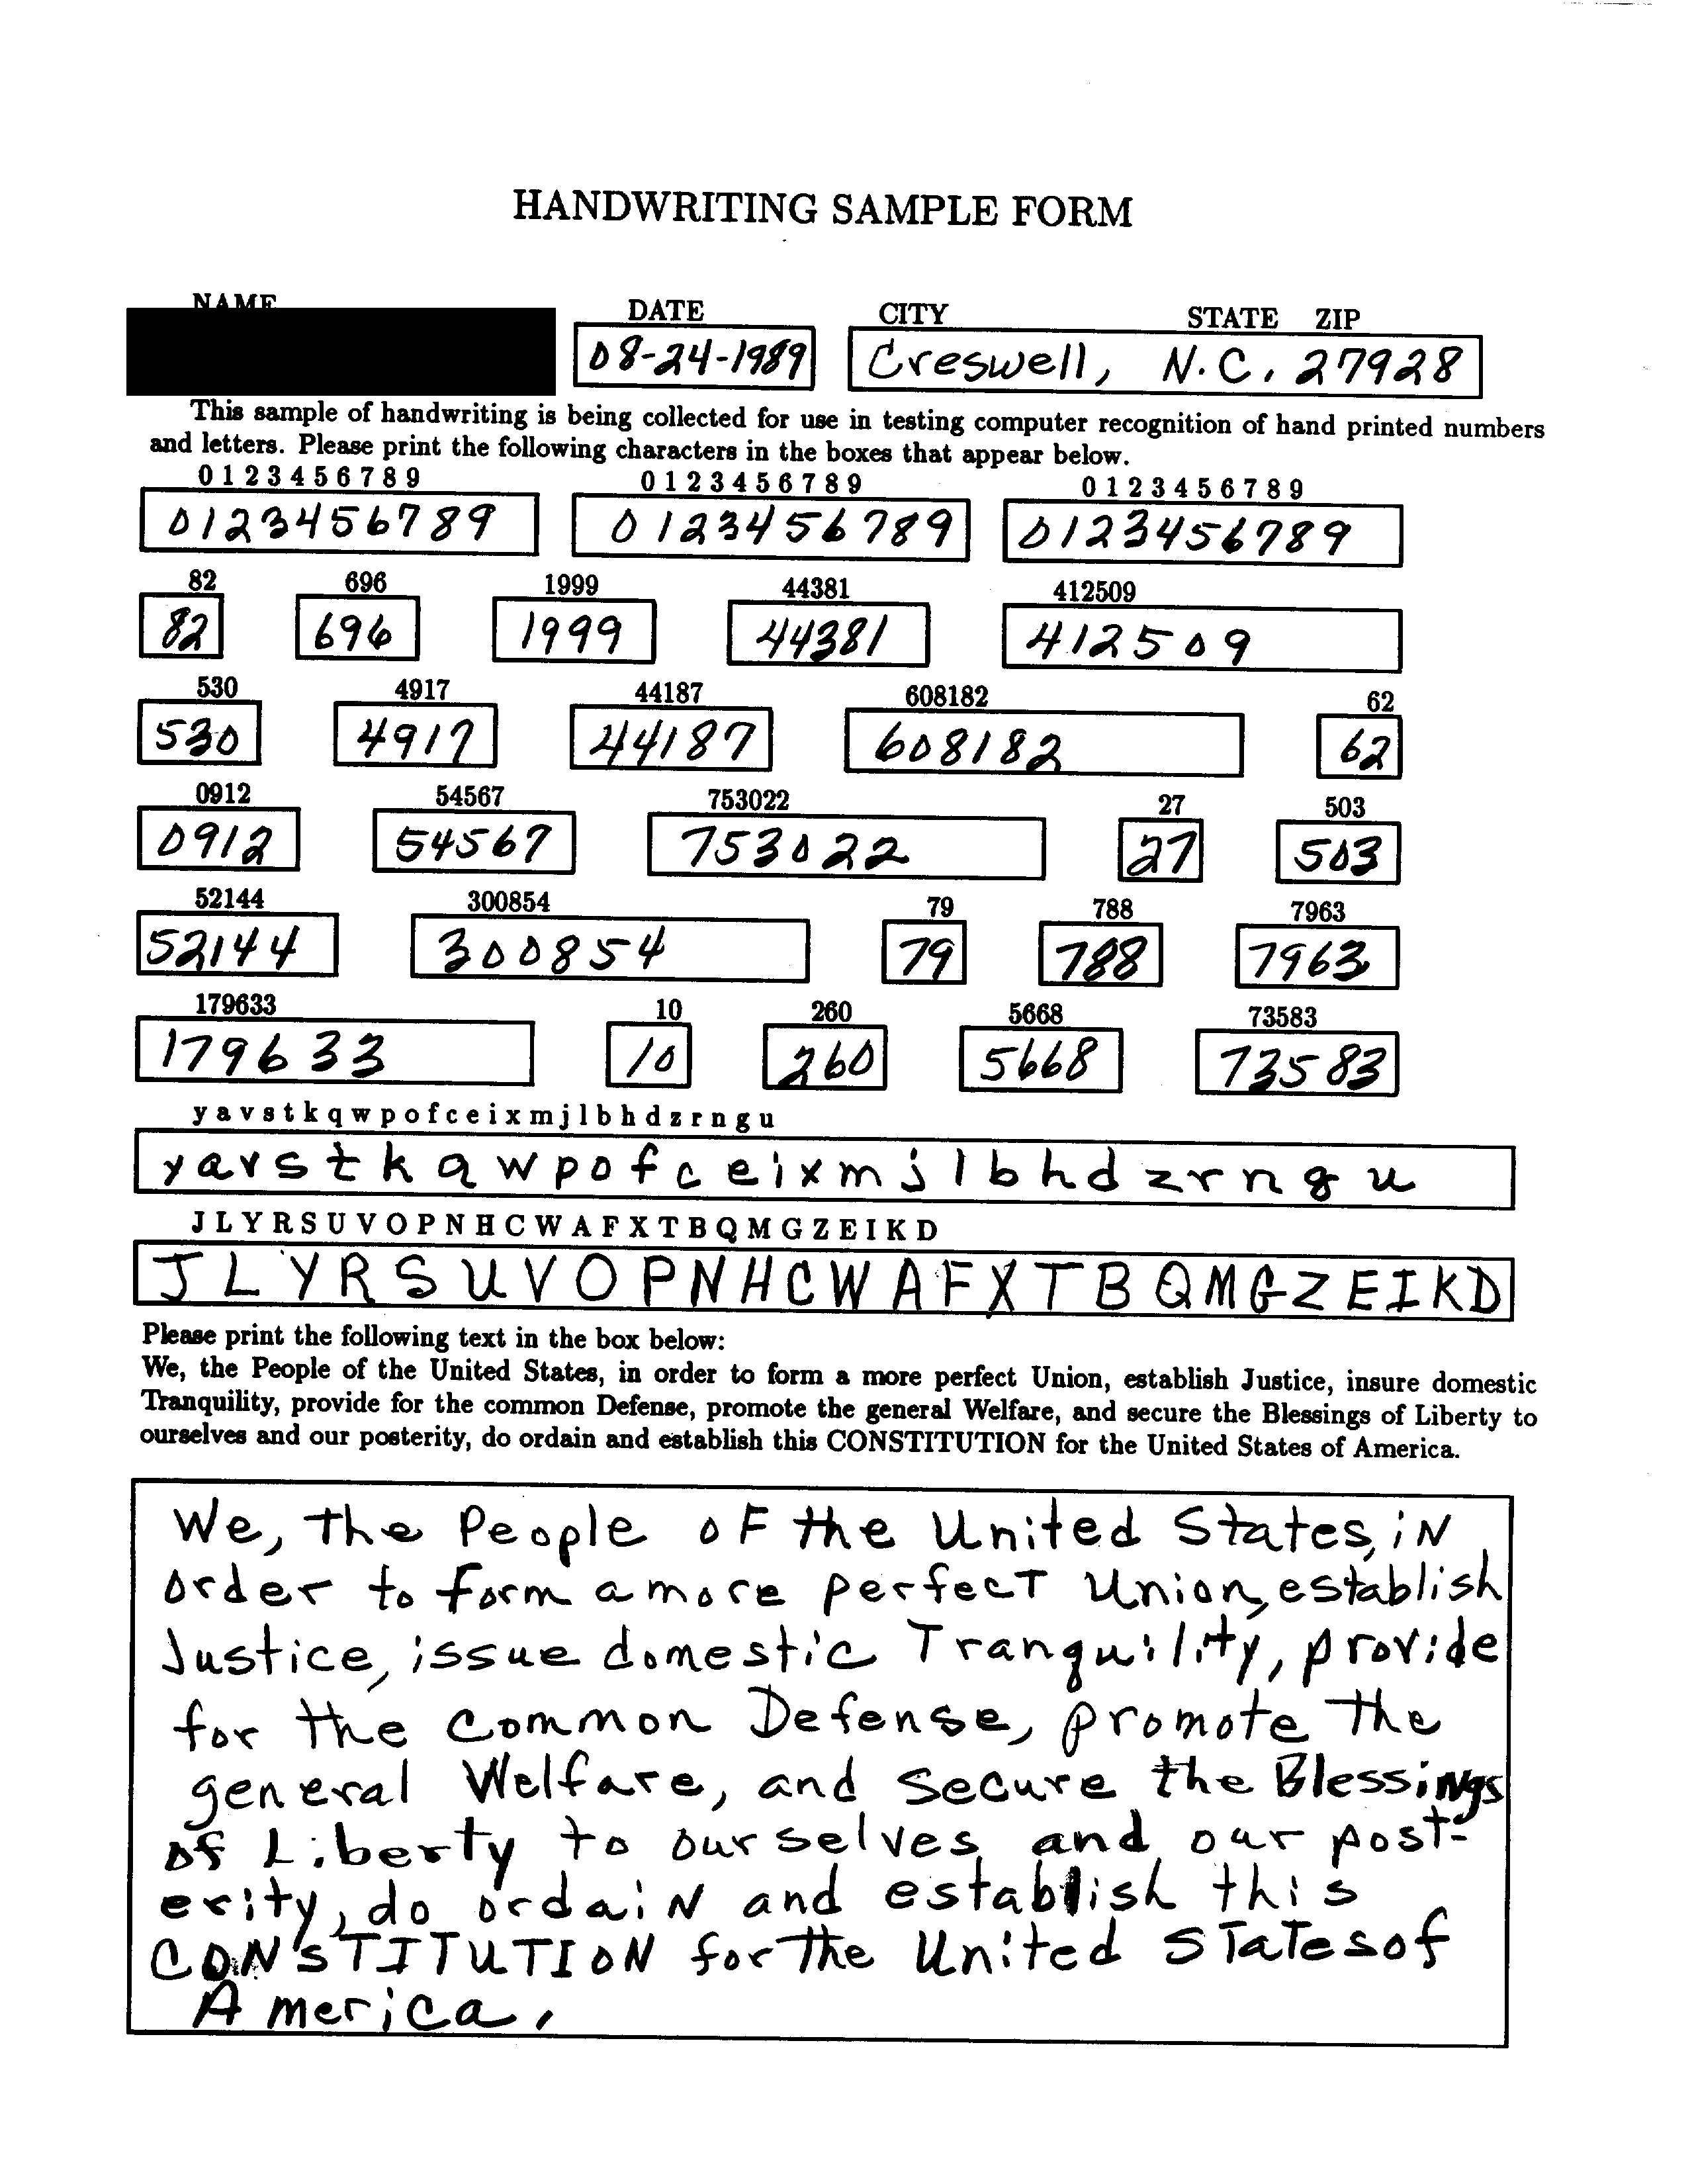 HANDWRITING SAMPLE FORM
NAME DATE CITY STATE ZIP
08-24-1989 Creswell, N.C. 27928
This sample of handwriting is being collected for use in testing computer recognition of hand printed numbers
and letters. Please print the following characters in the boxes that appear below.
0 1 2 3 4 5 6 7 8 9 0 1 2 3 4 5 6 7 8 9 0 1 2 3 4 5 6 7 8 9
0123456789 0123456789 0123456789
82 696 1999 44381 412509
82 696 1999 44381 412509
530 4917 44187 608182 62
530 4917 44187 608182 62
0912 54567 753022 27 503
0912 54567 753022 27 503
52144 300854 79 788 7963
52144 300854 79 788 7963
179633 10 260 5668 73583
179633 10 260 5668 73583
y a v s t k q w p o f c e i x m j l b h d z r n g u
y a v s t k q w p o f c e i x m j l b h d z r n g u
J L Y R S U V O P N H C W A F X T B Q M G Z E I K D
J L Y R S U V O P N H C W A F X T B Q M G Z E I K D
Please print the following text in the box below:
We, the People of the United States, in order to form a more perfect Union, establish Justice, insure domestic
Tranquility, provide for the common Defense, promote the general Welfare, and secure the Blessings of Liberty to
ourselves and our posterity, do ordain and establish this CONSTITUTION for the United States of America.
We, the People oF the United States, iN
order to form a more perfecT Union, establish
Justice, issue domestic Tranquility, provide
for the common Defense, promote the
general Welfare, and secure the BlessiNgs
of Liberty to ourselves and our post-
erity, do ordaiN and establish this
CONSTITUTION for the United STaTes of
America.